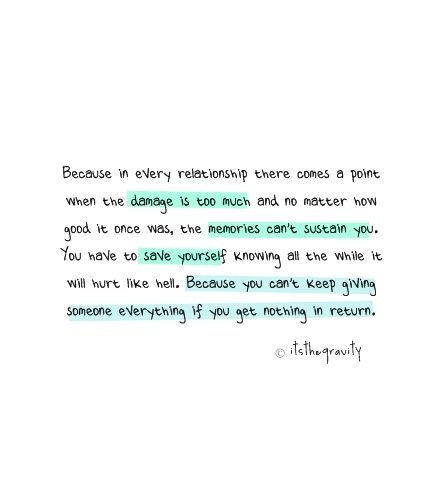 Because in every relationship there comes a point
when the damage is too much and no matter how
good it once was, the memories can't sustain you.
You have to save yourself knowing all the while it
will hurt like hell. Because you can't keep giving
someone everything if you get nothing in return.
© itsthegravity